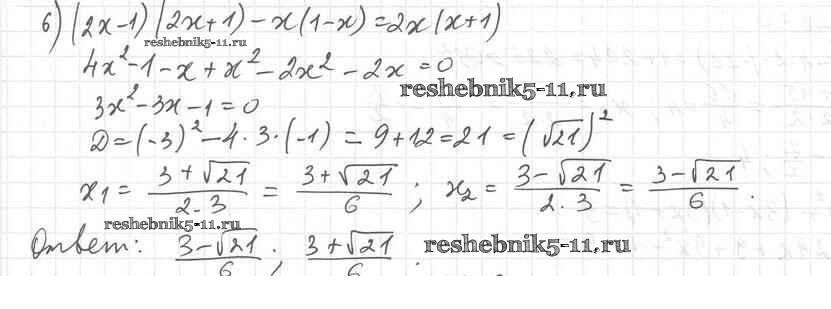 б) (2x-1)(2x+1)-x(1-x)=2x(x+1)
reshebnik5-11.ru
4x²-1-x+x²-2x²-2x=0
reshebnik5-11.ru
3x²-3x-1=0
D=(-3)²-4·3·(-1)=9+12=21=(√21)²
x₁=(3+√21)/(2·3)=(3+√21)/6; x₂=(3-√21)/(2·3)=(3-√21)/6.
reshebnik5-11.ru
Ответ: (3-√21)/6; (3+√21)/6.
reshebnik5-11.ru